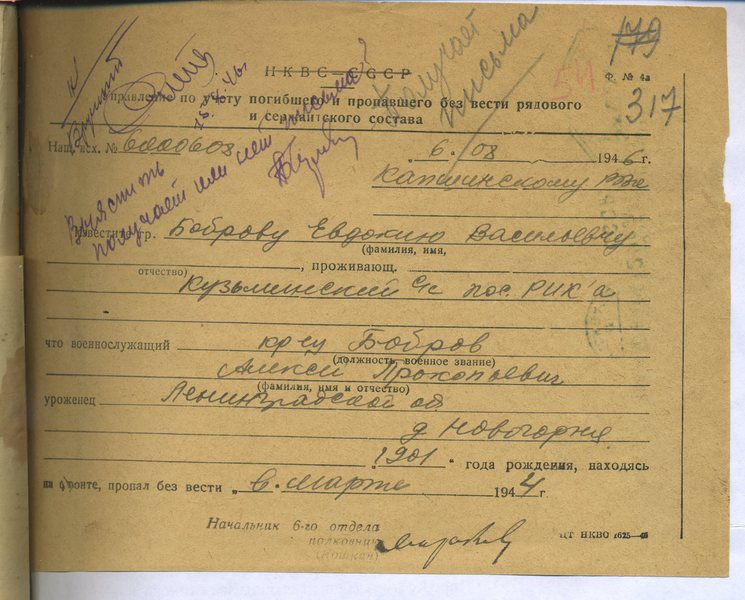 179
НКВС—СССР
Ф. № 4а
54
317
Управление по учету погибшего и пропавшего без вести рядового
и сержантского состава
Получает
письма
Выяснить
получает или нет письма?
Наш исх. № 6000608
„6„ 08 1946 г.
Капшинскому РВК
Известите гр. Боброву Евдокию Васильевну
(фамилия, имя,
отчество)
, проживающ.
Кузьминский с/с пос. РИК'а
что военнослужащий кр-ец Бобров
(должность, военное звание)
Алексей Прокопьевич
(фамилия, имя и отчество)
уроженец Ленинградской об
д Новогорня
1901 " года рождения, находясь
на фронте, пропал без вести „ 6. марта 1944 г.
Начальник 6-го отдела
полковник
ЦТ НКВО 1625—46